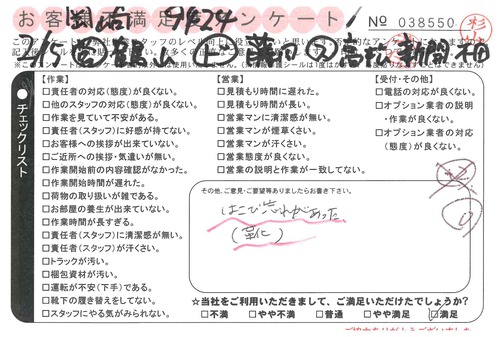 お客様不満足アンケート
岡右 9/24
№ 038550
杉
チェックリスト
【作業】
□責任者の対応(態度)が良くない。
□他のスタッフの対応(態度)が良くない。
□作業を見ていて不安がある。
□責任者(スタッフ)に好感が持てない。
□お客様への挨拶が出来ていない。
□ご近所への挨拶・気遣いが無い。
□作業開始前の内容確認がなかった。
□作業開始時間が遅れた。
□荷物の取り扱いが雑である。
□お部屋の養生が出来ていない。
□作業時間が長すぎる。
□責任者(スタッフ)に清潔感が無い。
□責任者(スタッフ)が汗くさい。
□トラックが汚い。
□梱包資材が汚い。
□運転が不安(下手)である。
□靴下の履き替えをしてない。
□スタッフにやる気がみられない。
【営業】
□見積もり時間に遅れた。
□見積もり時間が長い。
□営業マンに清潔感が無い。
□営業マンが煙草くさい。
□営業マンが汗くさい。
□営業態度が良くない。
□営業の説明と作業が一致してない。
【受付・その他】
□電話の対応が良くない。
□オプション業者の説明・作業が良くない。
□オプション業者の対応(態度)が良くない。
その他、ご意見・ご要望等ありましたらお書き下さい。
はこで忘れがあった
(革化)
☆当社をご利用いただきまして、ご満足いただけたでしょうか?
□不満 □やや不満 □普通 □やや満足 □満足
ご協力ありがとうございました